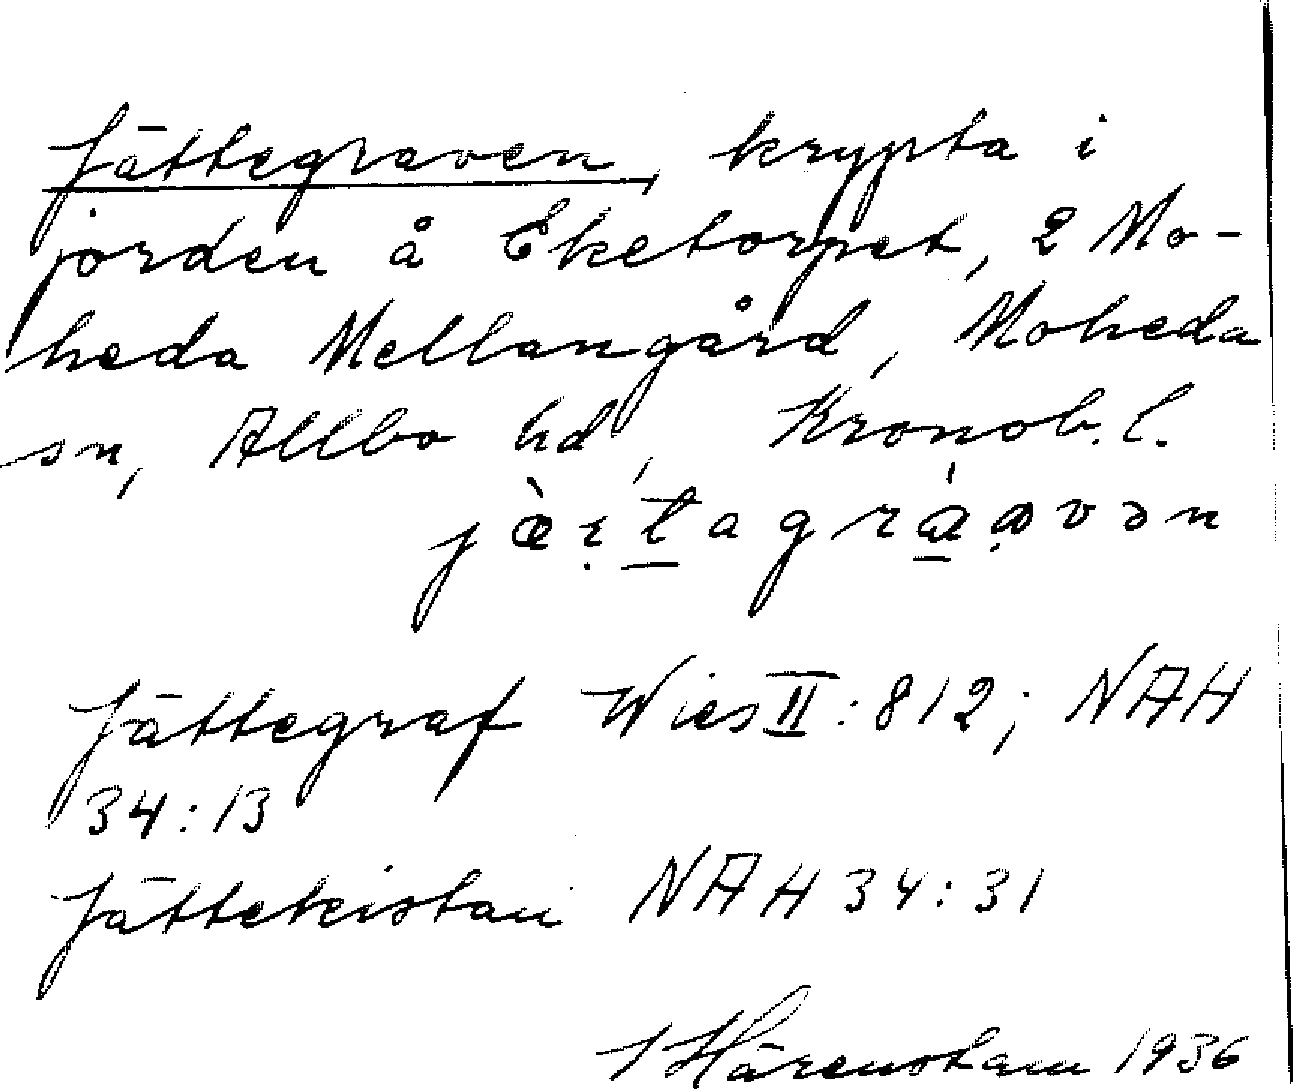 Jättegraven, krypta i
jorden å Eketorpet, 2 Mo-
heda Mellangård, Moheda
sn, Allbo hd, Kronob. l.
Jättegraf Wies II:812; NAH
34:13
Jättekistan NAH 34:31
Härenstam 1936